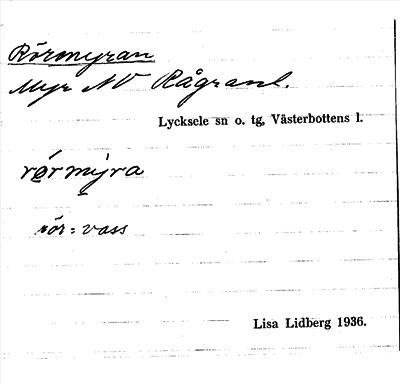 Rörmyran
Myr NV Rågranl.
Lycksele sn o. tg, Västerbottens l.
rørmýra
rör = vass
Lisa Lidberg 1936.